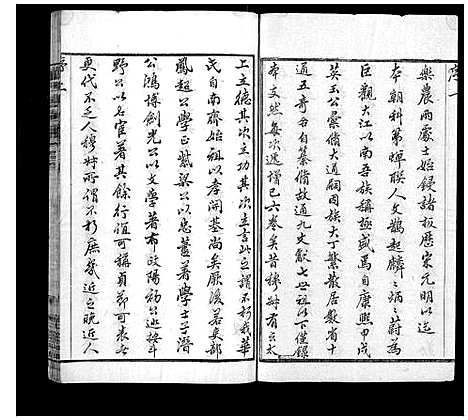 序一
樂農兩處士始鋟諸板歷宋元明以迄
本朝科第蟬聯人文鵲起麟麟炳炳蔚為
巨觀大江以南吾族稱極盛焉自康熙甲戌
英玉公彙脩大通嗣因族大丁繁散居數省十
通五奇台自纂脩故通九支獻七世祖以下僅錄
本支然每次遞增已六卷矣昔穆叔有云太
上立德其次立功其次立言此之謂不朽我華
氏自南齊始祖以孝開基尚矣厥後若吏部
鳳超公學正紫梁公以忠藎著學士子潛
公鴻博劍光公以文學著布政陽初公巡按斗
野公以名宦著其餘行誼可稱貞節可表者
更代不乏人穆叔所謂不朽庶幾近之晚近人